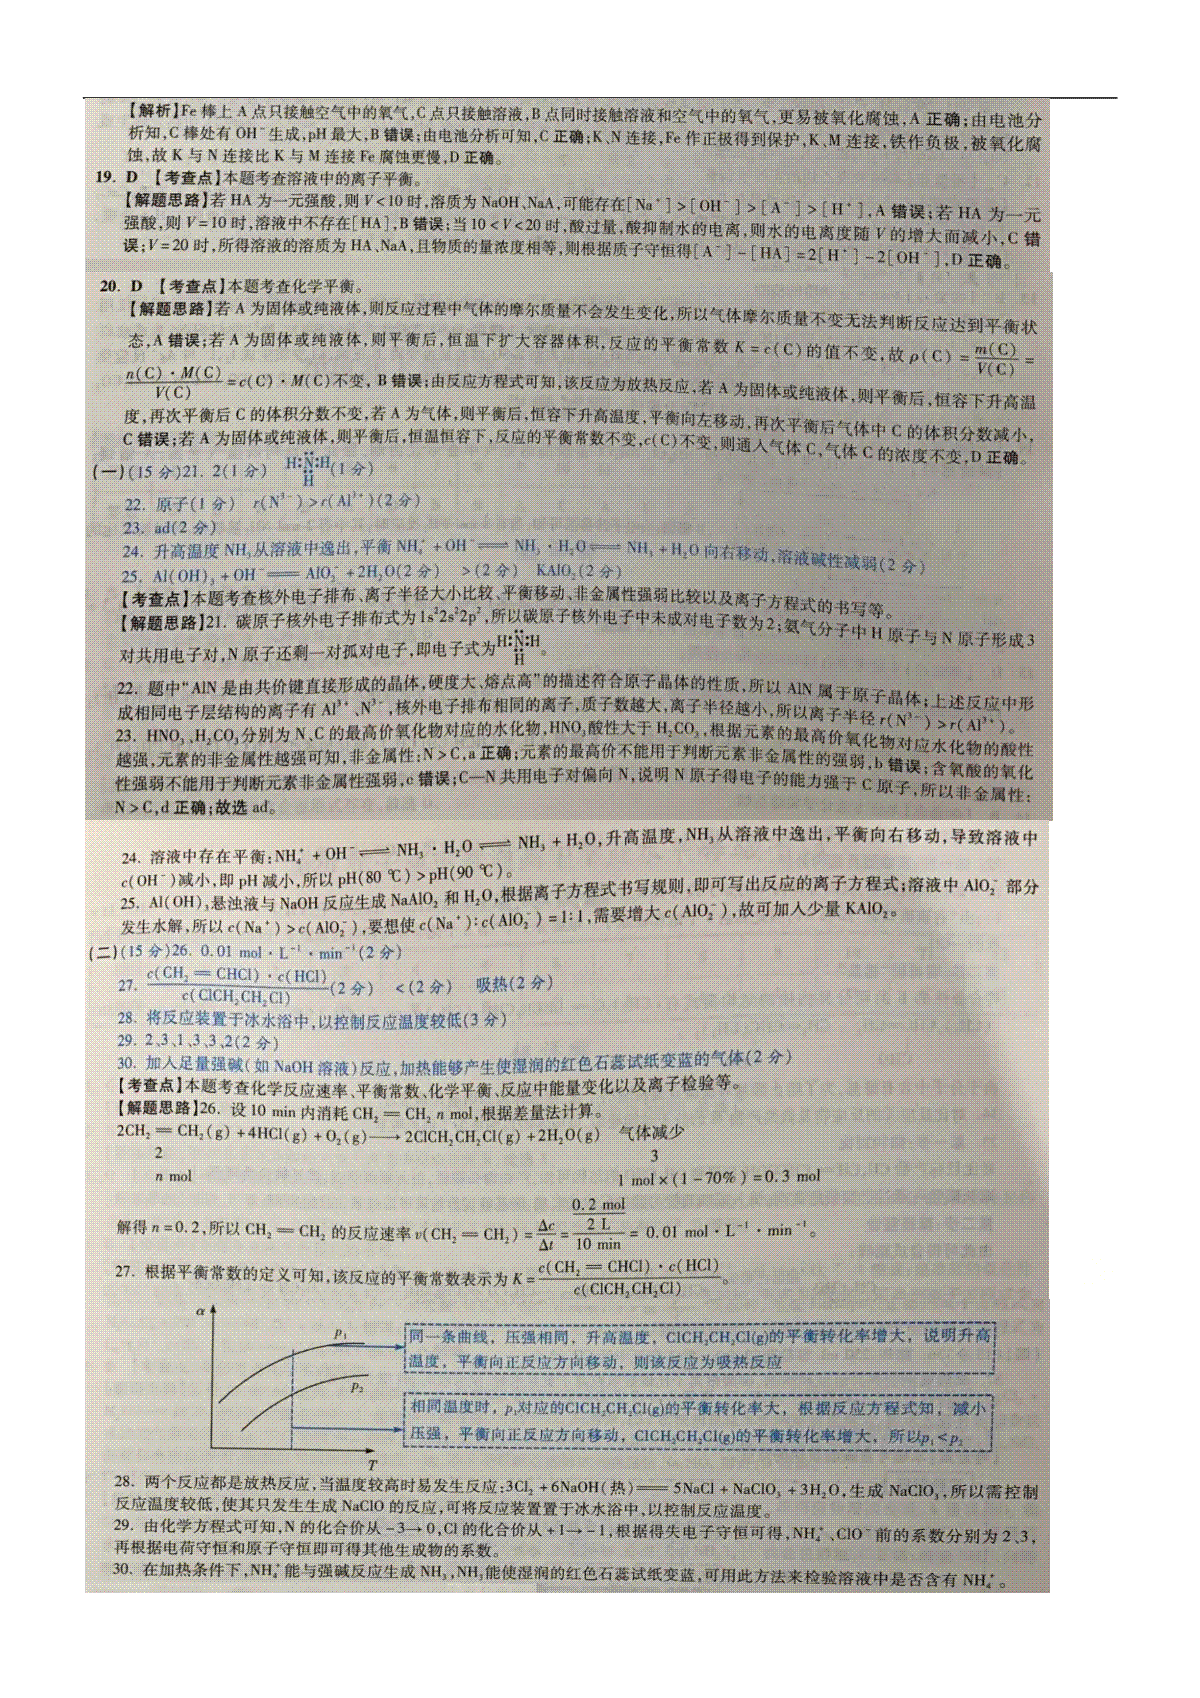 【解析】Fe 棒上 A 点只接触空气中的氧气,C 点只接触溶液,B 点同时接触溶液和空气中的氧气,更易被氧化腐蚀,A 正确;由电池分
析知,C 棒处有 OH⁻生成,pH 最大,B 错误;由电池分析可知,C 正确;K、N 连接,Fe 作正极得到保护,K、M 连接,铁作负极,被氧化腐
蚀,故 K 与 N 连接比 K 与 M 连接 Fe 腐蚀更慢,D 正确。
19. D 【考查点】本题考查溶液中的离子平衡。
【解题思路】若 HA 为一元强酸,则 V<10 时,溶质为 NaOH、NaA,可能存在[Na⁺]>[OH⁻]>[A⁻]>[H⁺],A 错误;若 HA 为一元
强酸,则 V=10 时,溶液中不存在[HA],B 错误;当 10<V<20 时,酸过量,酸抑制水的电离,则水的电离度随 V 的增大而减小,C 错
误;V=20 时,所得溶液的溶质为 HA、NaA,且物质的量浓度相等,则根据质子守恒得[A⁻]-[HA]=2[H⁺]-2[OH⁻],D 正确。
20. D 【考查点】本题考查化学平衡。
【解题思路】若 A 为固体或纯液体,则反应过程中气体的摩尔质量不会发生变化,所以气体摩尔质量不变无法判断反应达到平衡状
态,A 错误;若 A 为固体或纯液体,则平衡后,恒温下扩大容器体积,反应的平衡常数 K=c(C)的值不变,故 ρ(C)=m(C)/V(C)=
n(C)·M(C)/V(C)=c(C)·M(C)不变,B 错误;由反应方程式可知,该反应为放热反应,若 A 为固体或纯液体,则平衡后,恒容下升高温
度,再次平衡后 C 的体积分数不变,若 A 为气体,则平衡后,恒容下升高温度,平衡向左移动,再次平衡后气体中 C 的体积分数减小,
C 错误;若 A 为固体或纯液体,则平衡后,恒温恒容下,反应的平衡常数不变,c(C)不变,则通入气体 C,气体 C 的浓度不变,D 正确。
(一)(15 分)21. 2(1 分) H:N:H(1 分)
H
22. 原子(1 分) r(N³⁻)>r(Al³⁺)(2 分)
23. ad(2 分)
24. 升高温度 NH₃从溶液中逸出,平衡 NH₄⁺+OH⁻⇌NH₃·H₂O⇌NH₃+H₂O 向右移动,溶液碱性减弱(2 分)
25. Al(OH)₃+OH⁻══AlO₂⁻+2H₂O(2 分) >(2 分) KAlO₂(2 分)
【考查点】本题考查核外电子排布、离子半径大小比较、平衡移动、非金属性强弱比较以及离子方程式的书写等。
【解题思路】21. 碳原子核外电子排布式为 1s²2s²2p²,所以碳原子核外电子中未成对电子数为 2;氨气分子中 H 原子与 N 原子形成 3
对共用电子对,N 原子还剩一对孤对电子,即电子式为H:N:H。
H
22. 题中“AlN 是由共价键直接形成的晶体,硬度大、熔点高”的描述符合原子晶体的性质,所以 AlN 属于原子晶体;上述反应中形
成相同电子层结构的离子有 Al³⁺、N³⁻,核外电子排布相同的离子,质子数越大,离子半径越小,所以离子半径 r(N³⁻)>r(Al³⁺)。
23. HNO₃、H₂CO₃分别为 N、C 的最高价氧化物对应的水化物,HNO₃酸性大于 H₂CO₃,根据元素的最高价氧化物对应水化物的酸性
越强,元素的非金属性越强可知,非金属性:N>C,a 正确;元素的最高价不能用于判断元素非金属性的强弱,b 错误;含氧酸的氧化
性强弱不能用于判断元素非金属性强弱,c 错误;C—N 共用电子对偏向 N,说明 N 原子得电子的能力强于 C 原子,所以非金属性:
N>C,d 正确;故选 ad。
24. 溶液中存在平衡:NH₄⁺+OH⁻⇌NH₃·H₂O⇌NH₃+H₂O,升高温度,NH₃从溶液中逸出,平衡向右移动,导致溶液中
c(OH⁻)减小,即 pH 减小,所以 pH(80 ℃)>pH(90 ℃)。
25. Al(OH)₃悬浊液与 NaOH 反应生成 NaAlO₂ 和 H₂O,根据离子方程式书写规则,即可写出反应的离子方程式;溶液中 AlO₂⁻ 部分
发生水解,所以 c(Na⁺)>c(AlO₂⁻),要想使 c(Na⁺):c(AlO₂⁻)=1:1,需要增大 c(AlO₂⁻),故可加入少量 KAlO₂。
(二)(15 分)26. 0.01 mol·L⁻¹·min⁻¹(2 分)
27. c(CH₂═CHCl)·c(HCl)/c(ClCH₂CH₂Cl)(2 分) <(2 分) 吸热(2 分)
28. 将反应装置于冰水浴中,以控制反应温度较低(3 分)
29. 2、3、1、3、3、2(2 分)
30. 加入足量强碱(如 NaOH 溶液)反应,加热能够产生使湿润的红色石蕊试纸变蓝的气体(2 分)
【考查点】本题考查化学反应速率、平衡常数、化学平衡、反应中能量变化以及离子检验等。
【解题思路】26. 设 10 min 内消耗 CH₂═CH₂ n mol,根据差量法计算。
2CH₂═CH₂(g)+4HCl(g)+O₂(g)⟶2ClCH₂CH₂Cl(g)+2H₂O(g) 气体减少
2 3
n mol 1 mol×(1-70%)=0.3 mol
解得 n=0.2,所以 CH₂═CH₂ 的反应速率 v(CH₂═CH₂)=Δc/Δt=(0.2 mol/2 L)/10 min=0.01 mol·L⁻¹·min⁻¹。
27. 根据平衡常数的定义可知,该反应的平衡常数表示为 K=c(CH₂═CHCl)·c(HCl)/c(ClCH₂CH₂Cl)。
α
p₁
同一条曲线，压强相同，升高温度，ClCH₂CH₂Cl(g)的平衡转化率增大，说明升高
温度，平衡向正反应方向移动，则该反应为吸热反应
p₂
相同温度时，p₁对应的ClCH₂CH₂Cl(g)的平衡转化率大，根据反应方程式知，减小
压强，平衡向正反应方向移动，ClCH₂CH₂Cl(g)的平衡转化率增大，所以p₁<p₂
T
28. 两个反应都是放热反应,当温度较高时易发生反应:3Cl₂+6NaOH(热)══5NaCl+NaClO₃+3H₂O,生成 NaClO₃,所以需控制
反应温度较低,使其只发生生成 NaClO 的反应,可将反应装置置于冰水浴中,以控制反应温度。
29. 由化学方程式可知,N 的化合价从 -3→0,Cl 的化合价从 +1→-1,根据得失电子守恒可得,NH₄⁺、ClO⁻ 前的系数分别为 2、3,
再根据电荷守恒和原子守恒即可得其他生成物的系数。
30. 在加热条件下,NH₄⁺能与强碱反应生成 NH₃,NH₃能使湿润的红色石蕊试纸变蓝,可用此方法来检验溶液中是否含有 NH₄⁺。